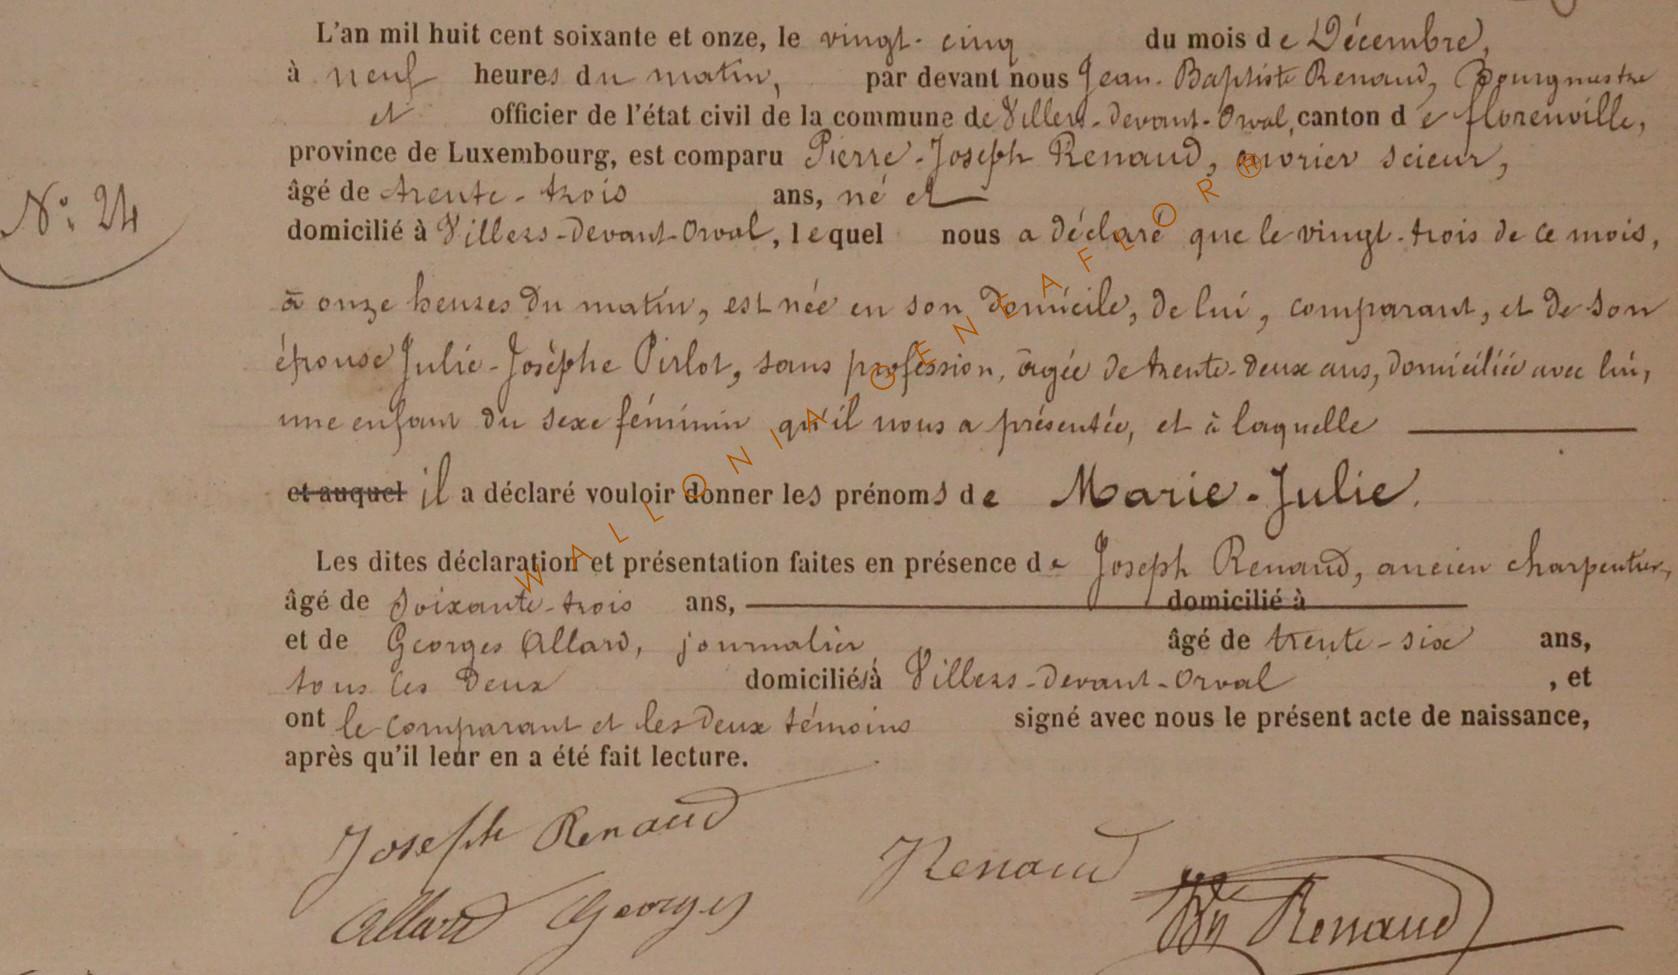 L'an mil huit cent soixante et onze, le vingt-cinq du mois de Décembre,
à neuf heures du matin, par devant nous Jean-Baptiste Renaud, Bourgmestre
et officier de l'état civil de la commune de Villers-devant-Orval, canton de florenville,
province de Luxembourg, est comparu Pierre-Joseph Renaud, ouvrier scieur,
âgé de trente-trois ans, né et
N° 24
domicilié à Villers-devant-Orval, lequel nous a déclaré que le vingt-trois de ce mois,
à onze heures du matin, est née en son domicile, de lui, comparant, et de son
épouse Julie-Josèphe Pirlot, sans profession, agée de trente-deux ans, domiciliée avec lui,
une enfant du sexe féminin qu'il nous a présentée, et à laquelle
et auquel il a déclaré vouloir donner les prénoms de Marie-Julie.
Les dites déclaration et présentation faites en présence de Joseph Renaud, ancien charpentier,
âgé de Soixante-trois ans, domicilié à
et de Georges Allard, journalier âgé de trente-six ans,
tous les deux domiciliés à Villers-devant-Orval, et
ont le comparant et les deux témoins signé avec nous le présent acte de naissance,
après qu'il leur en a été fait lecture.
Joseph Renaud
Renaud
Allard Georges
Bte Renaud
WALLONIA.GENEAFLOR®